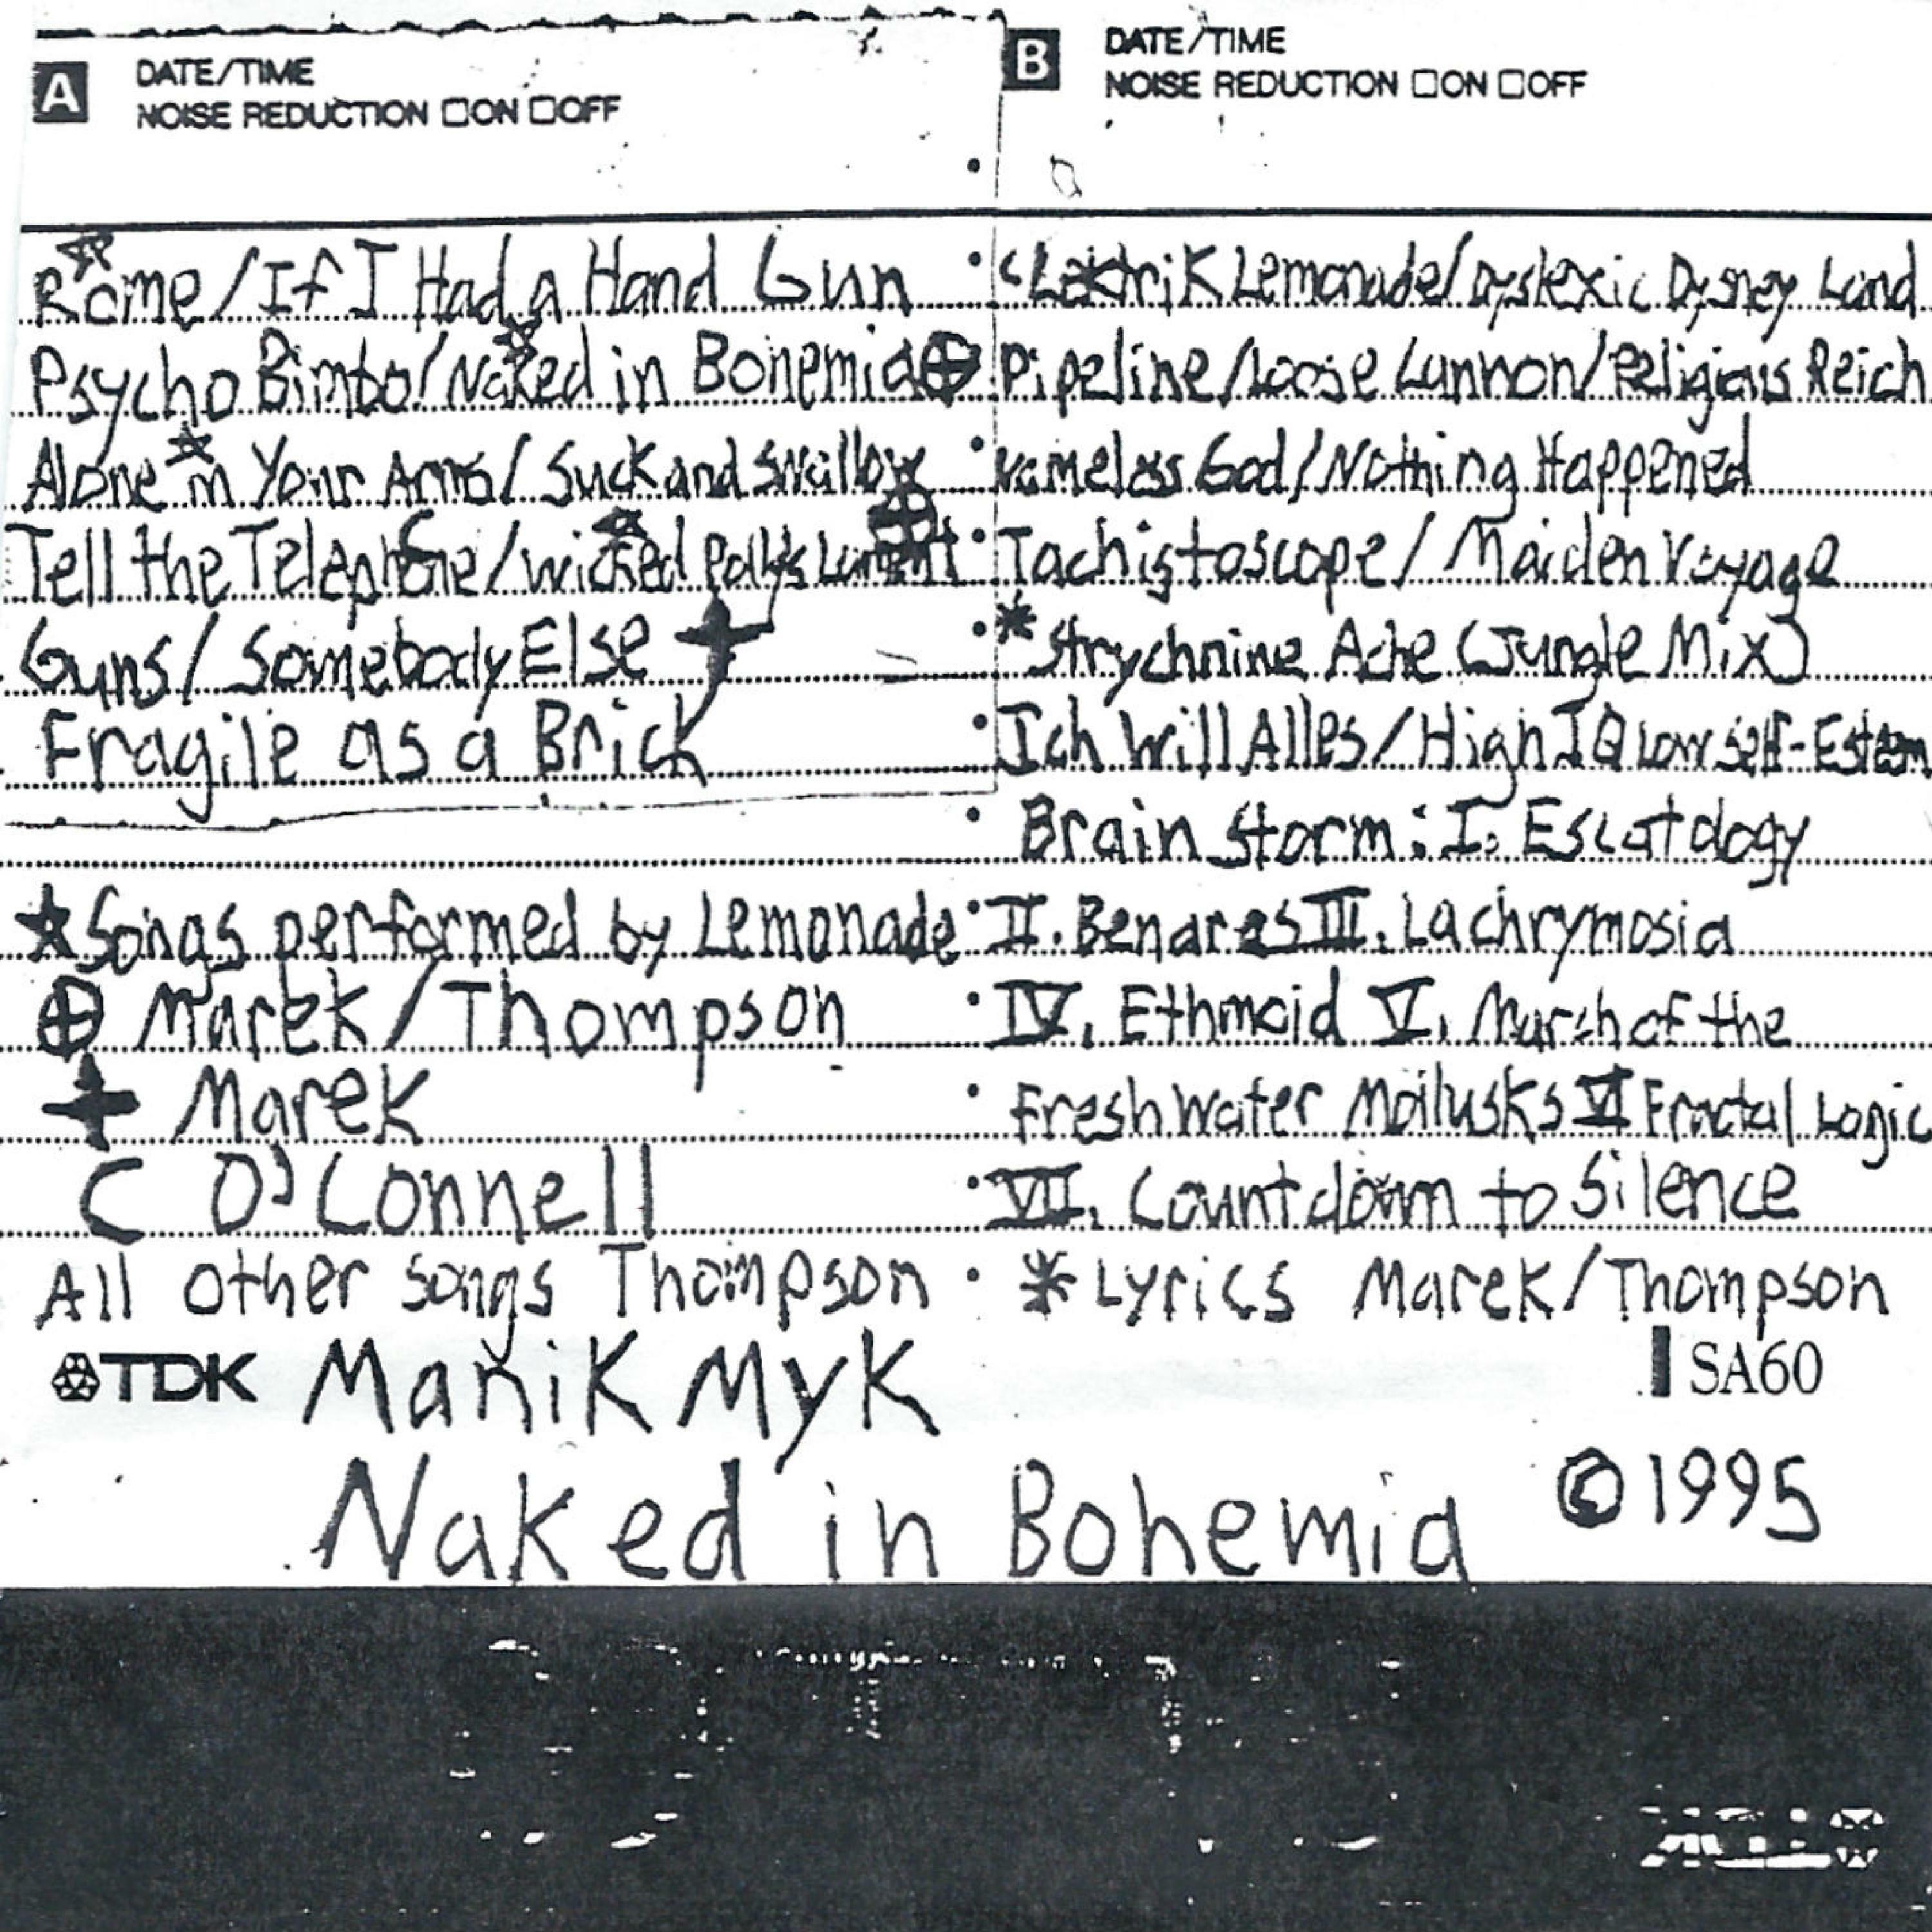 A DATE/TIME
NOISE REDUCTION ON OFF
Rome/If I Had a Hand Gun
Psycho Bimbo/Naked in Bohemia
Alone in Your Arms/Suck and Swallow
Tell the Telephone/Wicked Polly's Lament
Guns/Somebody Else
Fragile as a Brick
Songs performed by Lemonade
Marek/Thompson
Marek
C O'Connell
All other songs Thompson
B DATE/TIME
NOISE REDUCTION ON OFF
LektriK Lemonade/Dyslexic Dysney Land
Pipeline/Loose Cannon/Religious Reich
Nameless God/Nothing Happened
Tachistoscope/Maiden Voyage
*Strychnine Ache (Jungle Mix)
Ich Will Alles/High IQ Low Self-Esteem
Brain Storm: I. Escatology
II. Benares III. Lachrymosia
IV. Ethmoid V. March of the
Fresh Water Mollusks VI Fractal Logic
VII. Countdown to Silence
*Lyrics Marek/Thompson
TDK ManiK MyK
SA60
Naked in Bohemia ©1995